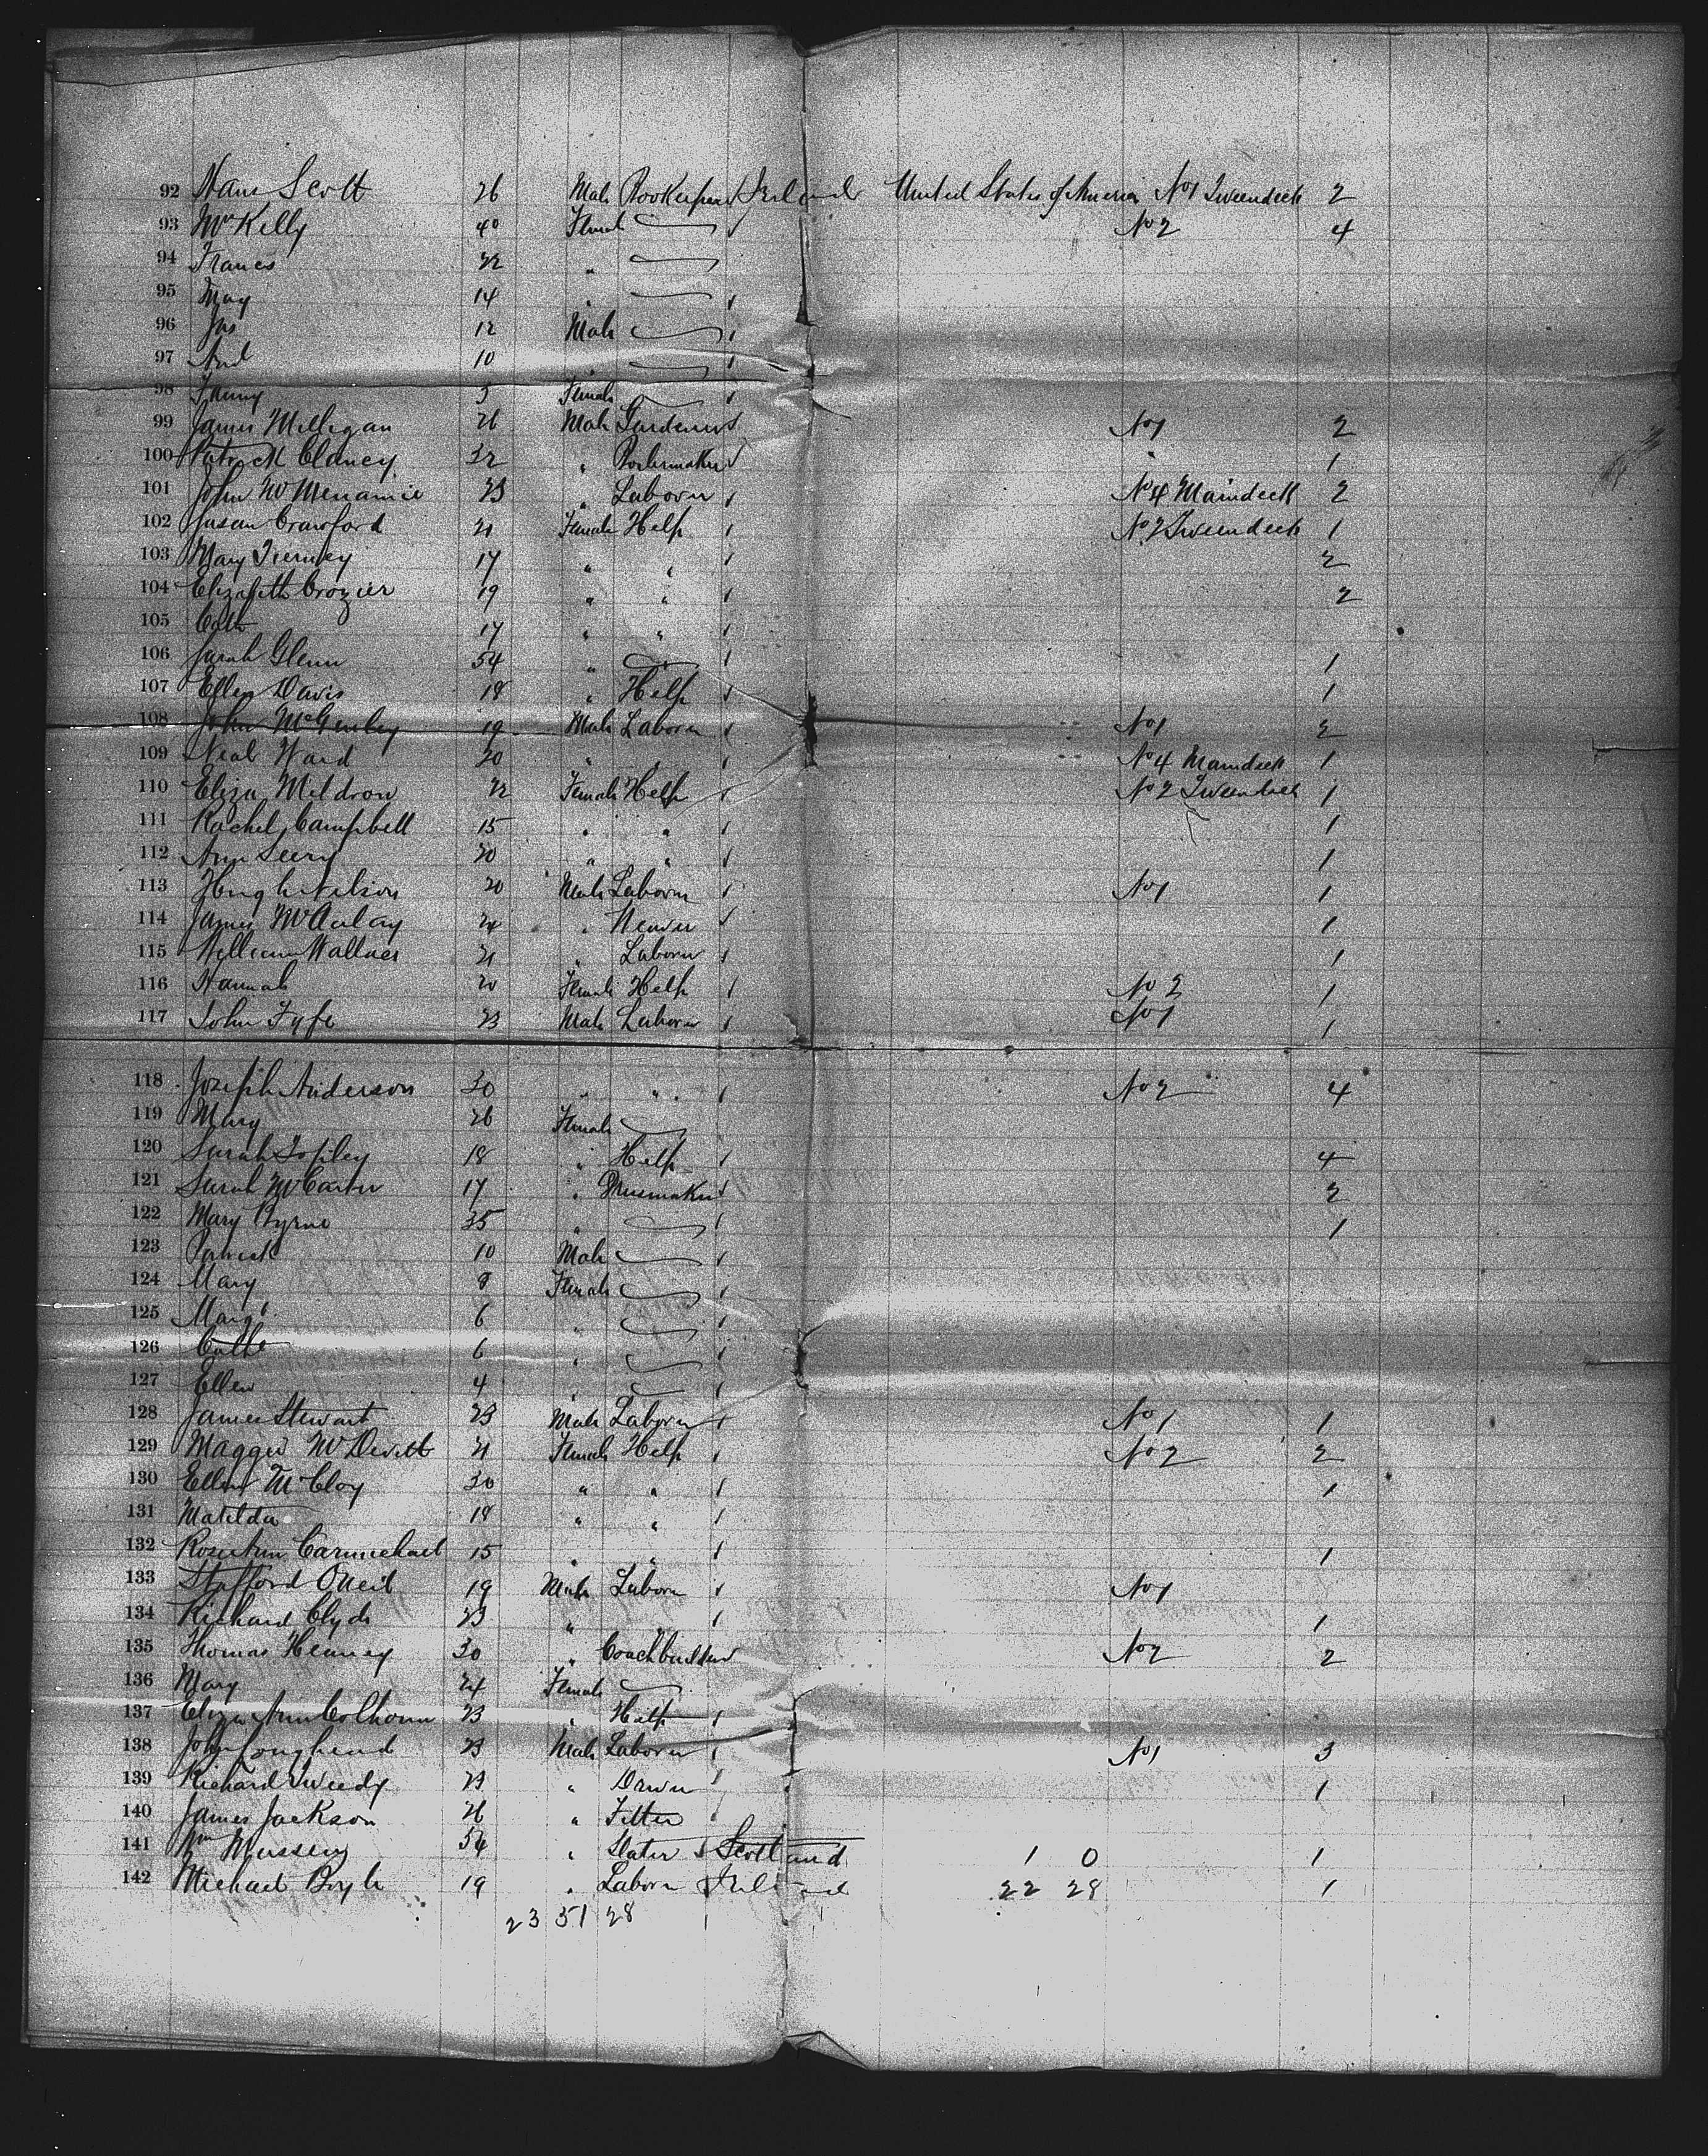 92 Hans Scott 26 Male Bookeeper Ireland United States of America No 1 Tweendeck 2
93 Mrs Kelly 40 Female No 2 4
94 Frances 22 "
95 May 14 "
96 Jas 12 Male
97 And 10 "
98 Fanny 5 Female
99 James Milligan 26 Male Gardener No 1 2
100 Patrick Clancy 32 " Boilermaker " 1
101 John McMenamie 23 " Laborer No 4 Maindeck 2
102 Susan Crawford 21 Female Help No 2 Tweendeck 1
103 Mary Tierney 17 " " 2
104 Elizabeth Crozier 19 " " 2
105 Cath 17 " "
106 Sarah Glenn 54 " 1
107 Ellen Davis 18 " Help 1
108 John McGinley 19 Male Laborer No 1 2
109 Neal Ward 20 " " No 4 Maindeck 1
110 Eliza Meldron 22 Female Help No 2 Tweendeck 1
111 Rachel Campbell 15 " " 1
112 Ann Seery 20 " " 1
113 Hugh Nelson 20 Male Laborer No 1 1
114 James McAulay 24 " Weaver 1
115 William Wallace 21 " Laborer 1
116 Hannah 20 Female Help No 2 1
117 John Fyfe 23 Male Laborer No 1 1
118 Joseph Anderson 30 " " No 2 4
119 Mary 26 Female
120 Sarah Topley 18 " Help 4
121 Sarah McCarter 17 " 2
122 Mary Byrne 35 " 1
123 Patrick 10 Male
124 Mary 8 Female
125 Margt 6 "
126 Cathe 6 "
127 Ellen 4 "
128 James Stewart 23 Male Laborer No 1 1
129 Maggie McDevitt 21 Female Help No 2 2
130 Ellen McCloy 30 " " 1
131 Matilda 18 " "
132 Rose Ann Carmichael 15 " " 1
133 Stafford ONeil 19 Male Laborer No 1
134 Richard Clyde 23 " " 1
135 Thomas Heaney 30 " Coachbuilder No 2 2
136 Mary 24 Female
137 Eliza Ann Colhoun 23 " Help
138 John Loughead 23 Male Laborer No 1 3
139 Richard Tweedy 23 " 1
140 James Jackson 26 " Fitter
141 Wm 54 " Slater Scotland 1 0 1
142 Michael Boyle 19 " Laborer Ireland 22 28 1
23 51 28